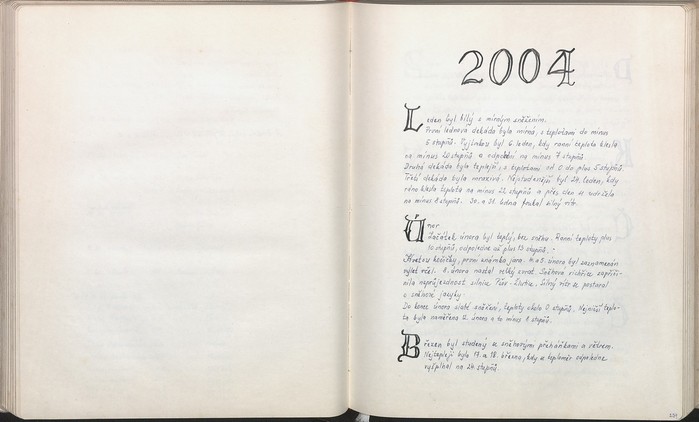 2004
Leden byl bílý s mírným sněžením.
První lednová dekáda byla mírná, s teplotami do minus
5 stupňů. Vyjímkou byl 6. leden, kdy ranní teplota klesla
na minus 20 stupňů a odpolední na minus 7 stupňů.
Druhá dekáda byla teplejší, s teplotami od 0 do plus 5 stupňů.
Třetí dekáda byla mrazivá. Nejstudenější byl 24. leden, kdy
ráno klesla teplota na minus 22 stupňů a přes den se udržela
na minus 8 stupňů. 30. a 31. ledna foukal silný vítr.
Únor
Začátek února byl teplý, bez sněhu. Ranní teploty plus
10 stupňů, odpoledne až plus 13 stupňů.
Kvetou kočičky, první známka jara. 4. a 5. února byl zaznamenán
výlet včel. 8. února nastal velký zvrat. Sněhová vichřice zapříči-
nila neprůjezdnost silnice. Silný vítr se postaral
o sněhové jazyky.
Do konce února slabé sněžení, teploty okolo 0 stupňů. Nejnižší teplo-
ta byla naměřena 12. února a to minus 8 stupňů.
Březen byl studený se sněhovými přeháňkami a větrem.
Nejtepleji bylo 17. a 18. března, kdy se teploměr odpoledne
vyšplhal na 24 stupňů.